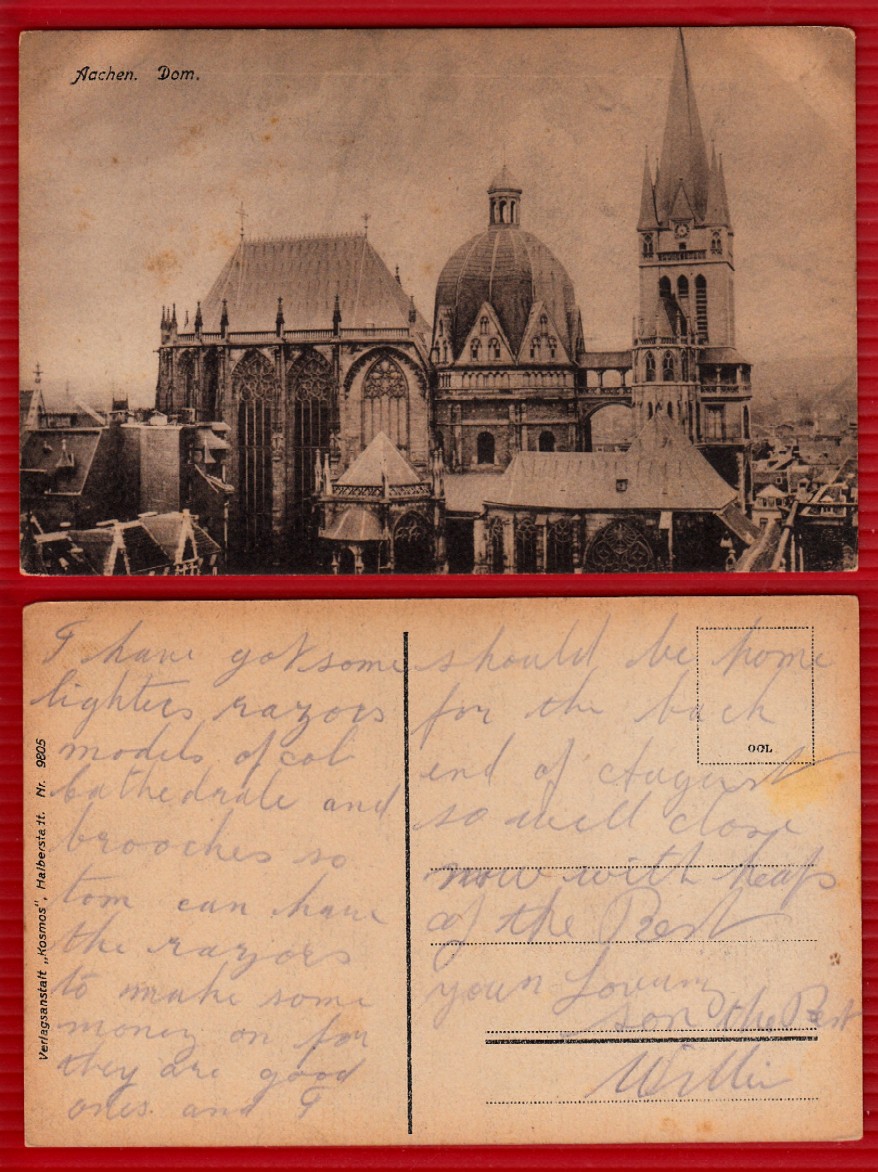 Aachen. Dom.
I have got some
lighters razors
models of col
cathedrale and
brooches so
tom can have
the razors
to make some
money on for
they are good
ones and I
should be home
for the back
end of August
so will close
now with heaps
of the Best
your Loving
son the Best
Willie
Verlagsanstalt „Kosmos", Halberstadt. Nr. 9805